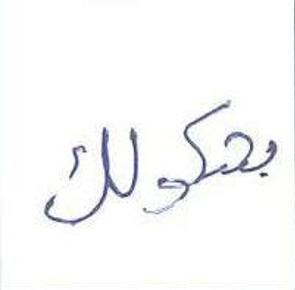 بحكولك